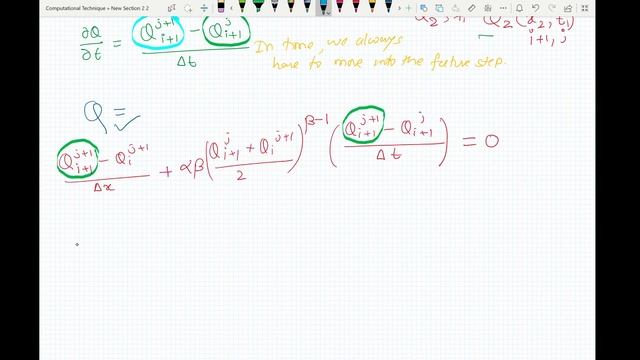 Computational Technique » New Section 2.2
∂Q/∂t = (Q_{i+1}^{j+1} − Q_{i+1}^{j})/Δt
Q_2 (x_2, t_1)
i+1, j
In time, we always
have to move into the future step.
Q =
(Q_{i+1}^{j+1} − Q_i^{j+1})/Δx + αβ((Q_{i+1}^{j} + Q_i^{j+1})/2)^{β−1} ((Q_{i+1}^{j+1} − Q_{i+1}^{j})/Δt) = 0